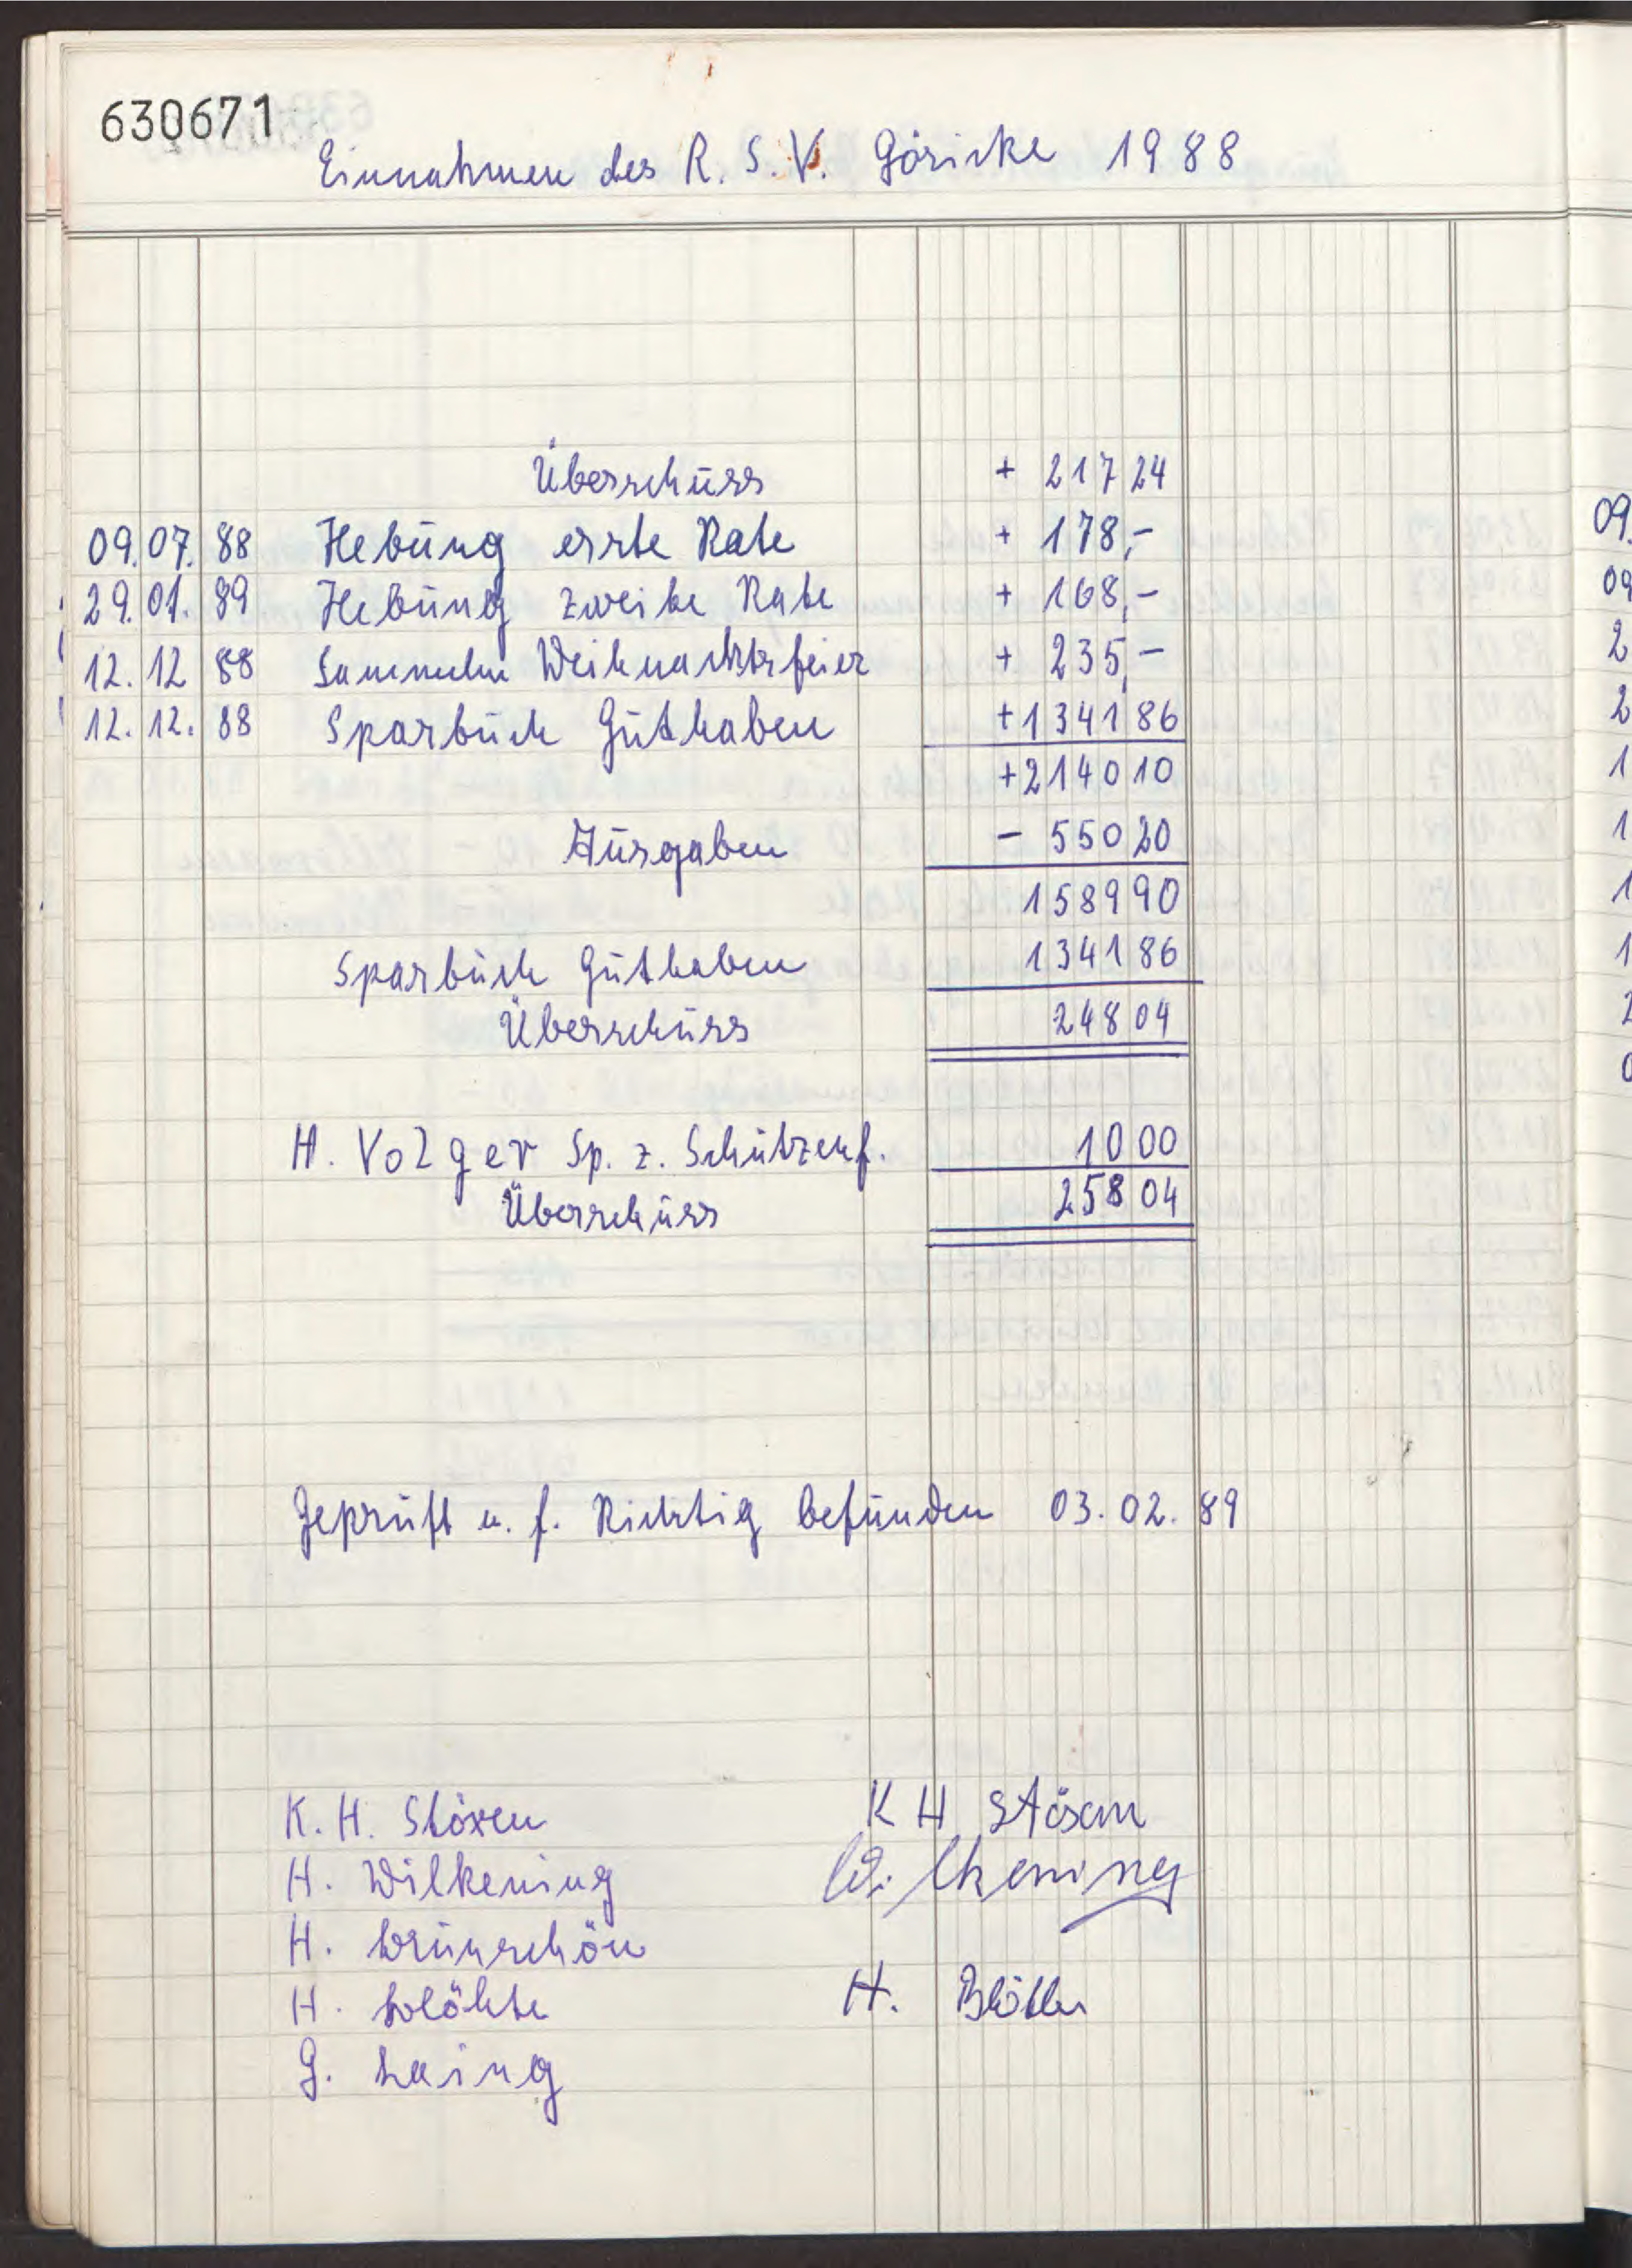 630671
Einnahmen des R. S. V. Göricke 1988
Überschuss + 217 24
09. 07. 88 Hebung erste Rate + 178,-
29. 01. 89 Hebung zweite Rate + 168,-
12. 12 88 Sammeln Weihnachtsfeier + 235,-
12. 12. 88 Sparbuch Guthaben +1341 86
+2140 10
Ausgaben - 550 20
1589 90
Sparbuch Guthaben 1341 86
Überschuss 248 04
H. Volger Sp. z. Schützenf. 10 00
Überschuss 258 04
Geprüft u. f. Richtig befunden 03. 02. 89
K. H. Stöxen K H
H. Wilkening Wilkening
H.
H. H.
G.